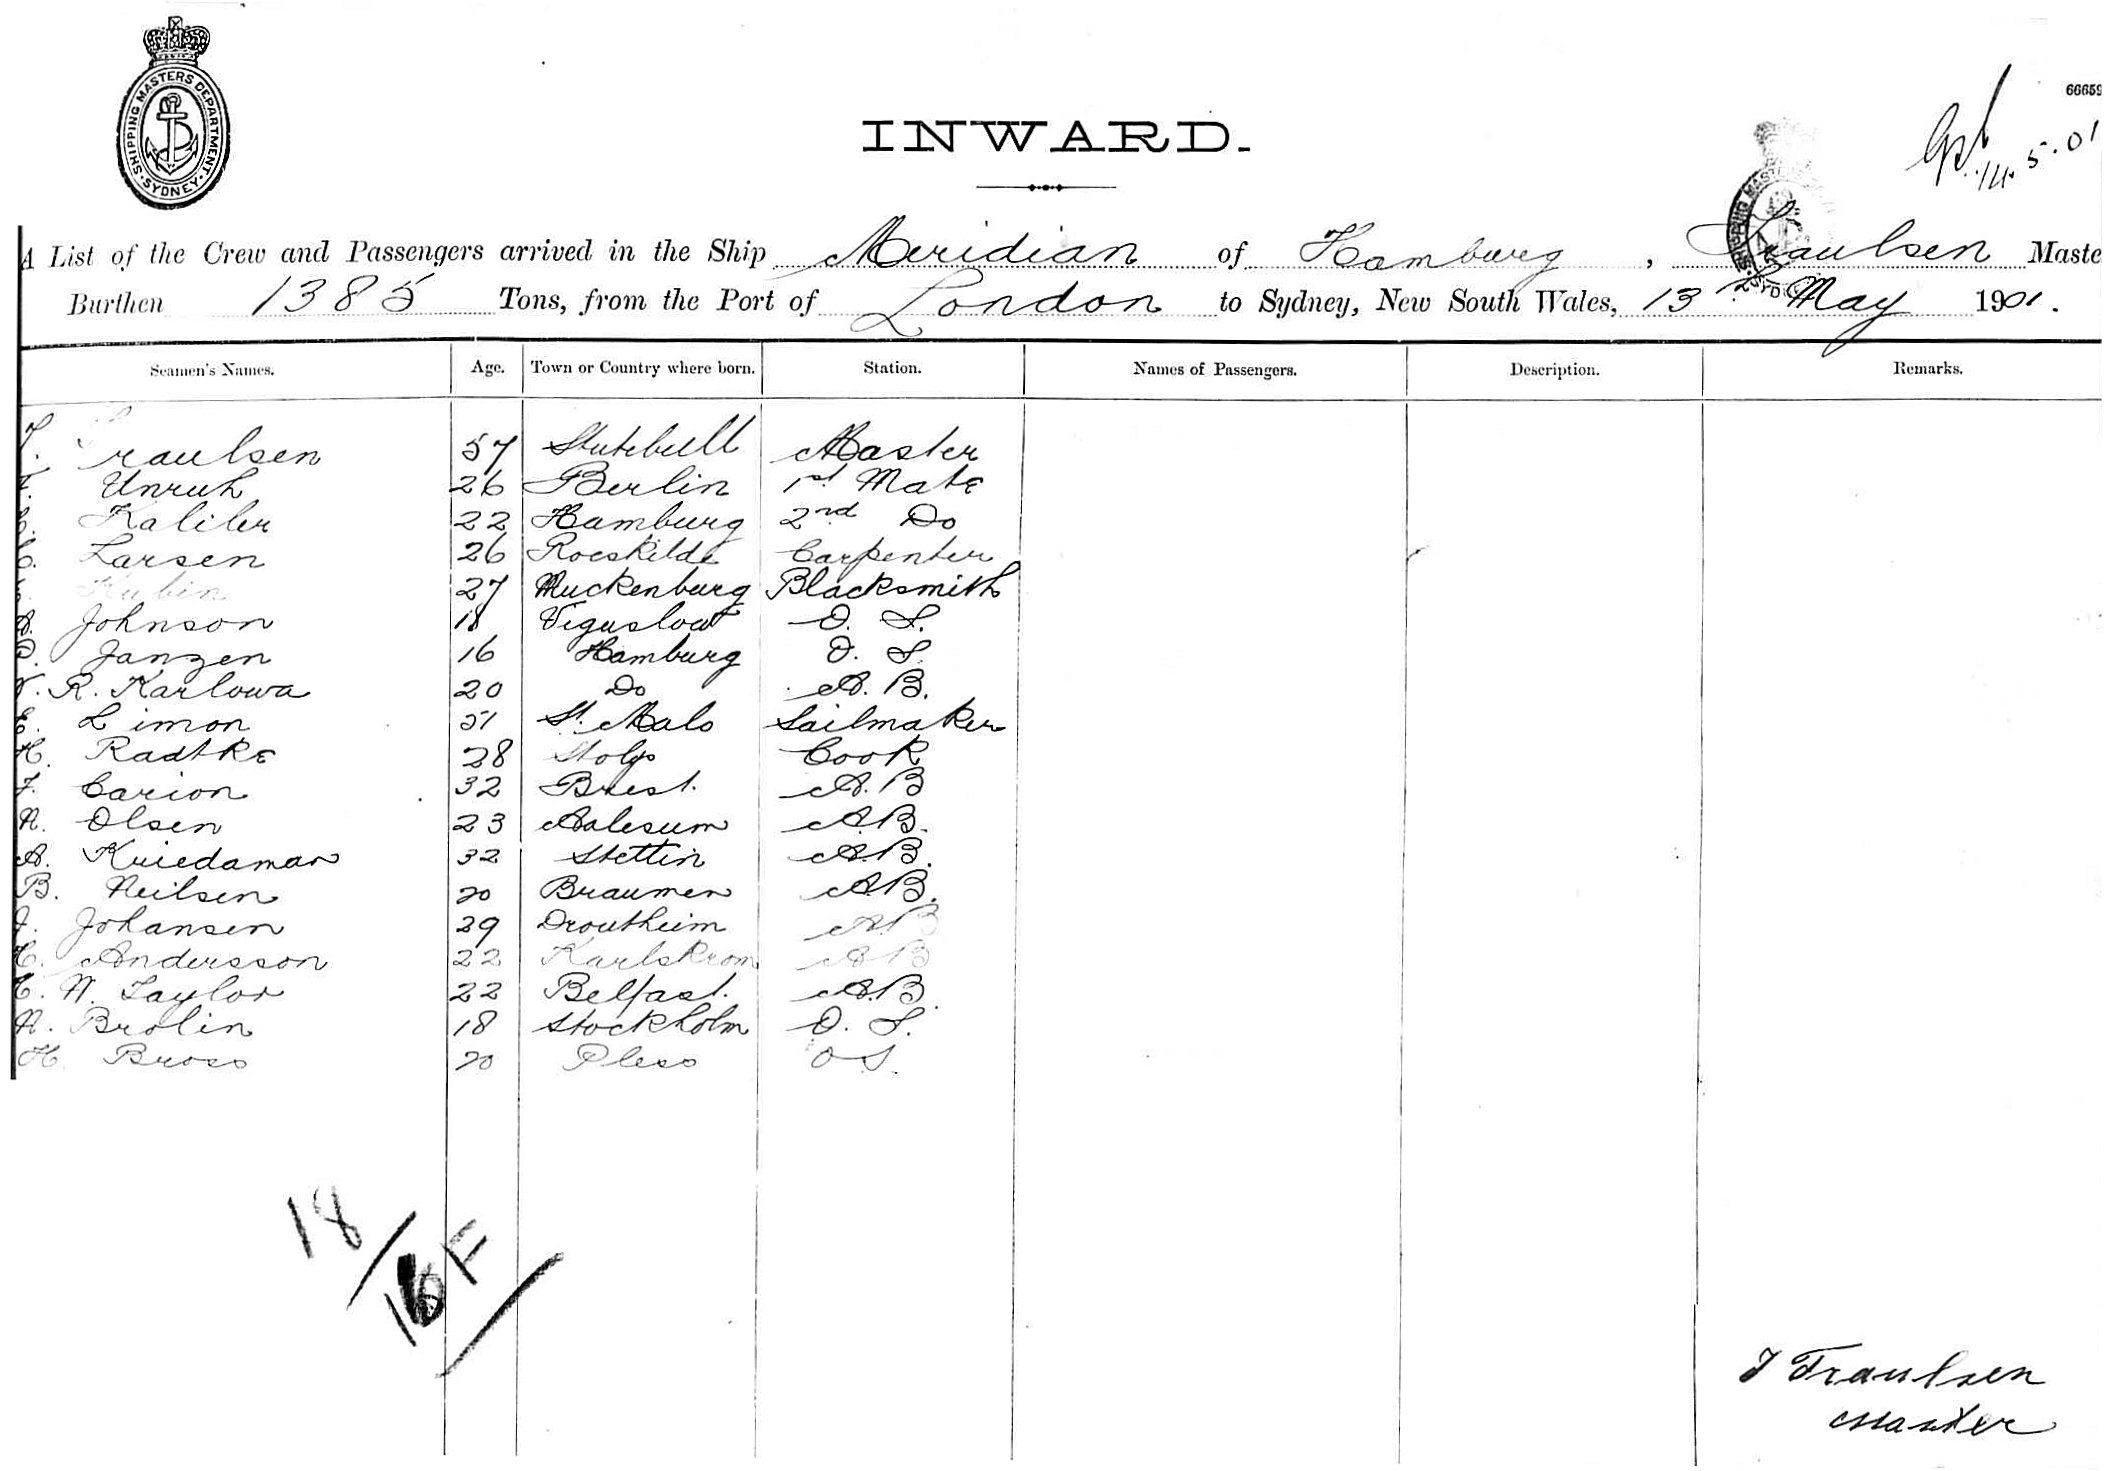 SHIPPING MASTERS DEPARTMENT. SYDNEY.
66659
INWARD.
14.5.01
A List of the Crew and Passengers arrived in the Ship Meridian of Hamburg, Traulsen Maste
Burthen 1385 Tons, from the Port of London to Sydney, New South Wales, 13 May 1901.
Seamen's Names. Age. Town or Country where born. Station. Names of Passengers. Description. Remarks.
Traulsen 57 Stutebull Master
Unruh 26 Berlin 1st Mate
Kaliler 22 Hamburg 2nd Do
C. Larsen 26 Roeskilde Carpenter
Kubin 27 Muckenburg Blacksmith
Johnson 18 O. S.
P. Janzen 16 Hamburg O. S.
R. Karlowa 20 Do A. B.
E. Limon 51 St. Malo Sailmaker
H. Radtke 28 Stolp Cook
F. Carion 32 Brest. A. B
N. Olsen 23 Aalesum A.B.
A. Kriedaman 32 Stettin A.B.
B. Neilsen 20 Braumen A.B.
J. Johansen 29 Droutheim A.B
C. Andersson 22 Karlskrom A B
C. W. Taylor 22 Belfast. A.B.
N. Brolin 18 Stockholm O. S.
H. Bross 20 Pless O S.
18/16 F
T Traulsen
Master